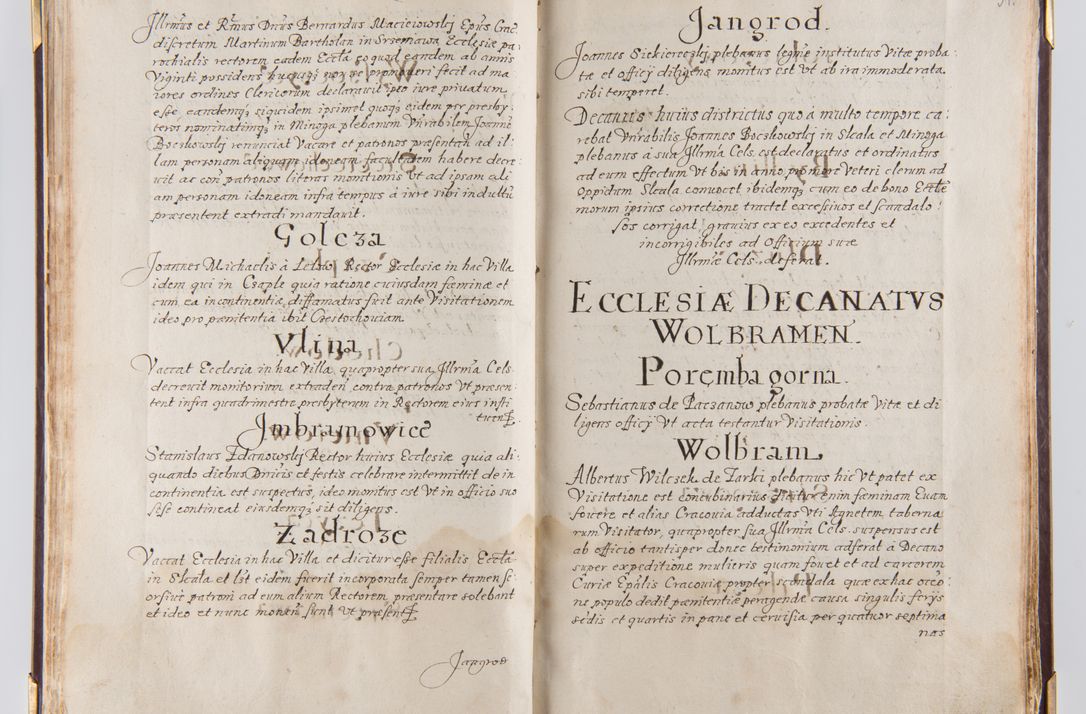 Jllrmus et Rmus Dnus Bernardus Macieiowskj Epus Crac
discretum Martinum Bartholan in Srzemawa Ecclesiæ pa
rochialis rectorem eadem Eccla eo quod eandem ab annis
Viginti possidens hucusq; promoveri fecit ad ma
iores ordines Clericorum declaravit ipso iure privatum
esse eandemq; siquidem ipsimet quoq; eidem per presby
teros nominatimq; in Minoga plebanum Vnrabilem Joanne
Boczkowskj renunciat Vacare et patronos præsentan ad il
lam personam aliquam idoneam facultatem habere decre
vit ac con patronos literas monitionis Vt ad ipsam ali
am personam idoneam infra tempus à iure sibi indultu
præsentent extradi mandavit.
Golcza
Joannes Michaelis à Lelow Rector Ecclesiæ in hac Villa
idem qui in Czaple quia ratione cuiusdam fæminæ et
cum ea incontinentiæ diffamatus fuit ante Visitationem
ideo pro pænitentia ibit Czestochoviam
Vlina
Vaccat Ecclesia in hac Villa, quapropter sua Jllrma Cels
decrevit monitorium extraden contra patronos Vt præsen
tent infra quadrimestre presbyterum in Rectorem eius insti
tuen
Jmbramowice
Stanislaus Zdanowskj Rector huius Ecclesiæ quia ali
quando diebus Dnicis et festis celebrare intermittit de in
continentia est suspectus, ideo monitus est Vt in officio suo
sese contineat eiusdemq; sit diligens.
Zadroze
Vaccat Ecclesia in hac Villa et dicitur esse filialis Eccla
in Skala et lit eidem fuerit incorporata semper tamen se
orsive patroni ad eum alium Rectorem præsentare solebant
et ideo et nunc monen sunt Vt præsent
Jangrod
Jangrod.
Joannes Siekierezkj plebanus legitime institutus Vitæ proba
tæ et officy diligens monitus est Vt ab ira immoderata
sibi temperet.
Decanus huius districtus quo à multo tempore ca
rebat Vnrabilis Joannes Boczkowskj in Skala et Minoga
plebanus à sua Jllrma Cels. est declaratus et ordinatus
ad eum effectum Vt bis in anno promore Veteri clerum ad
Oppidum Skala convocet ibidemq; cum eo de bono Eccle
morum ipsius correctione tractet excessivos et scandalo
sos corrigat gravius ex eo excedentes et
incorrigibiles ad Officium suæ
Jllrmæ Cels. deferat.
ECCLESIÆ DECANATVS
WOLBRAMEN.
Poremba gorna.
Sebastianus de Paczanow plebanus probatæ Vitæ et di
ligens officy Vt acta testantur Visitationis.
Wolbram
Albertus Wilczek de Zarki plebanus hic Vt patet ex
Visitatione est concubinarius enim fæminam Evam
fovere et alias Cracovia adductas Vti Agnetem taberna
rum Visitator, quapropter sua Jllrma Cels. suspensus est
ab officio tantisper donec testimonium adferat à Decano
super expeditione mulieris quam fovet et ad carcerem
Curiæ Epalis Cracoviæ propter scandala quæ ex hac occo
ne populo dedit pænitentiæ peragendæ causa singulis ferys
sedis et quartis in pane et cervisia per quatuor septima
nas